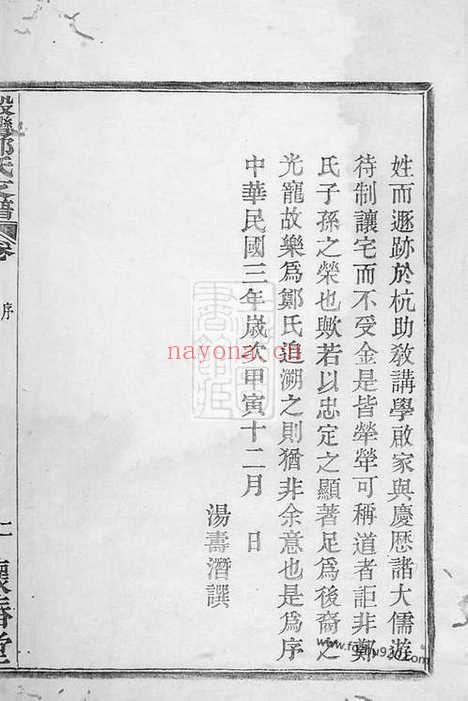 姓而遯跡於杭助敎講學啟家與慶歷諸大儒遊
待制讓宅而不受金是皆犖犖可稱道者詎非鄭
氏子孫之榮也歟若以忠定之顯著足爲後裔之
光寵故樂爲鄭氏追溯之則猶非余意也是爲序
中華民國三年歲次甲寅十二月 日
湯壽潛譔
鄭氏支譜 卷
序
二
懷 堂
nayona.cn